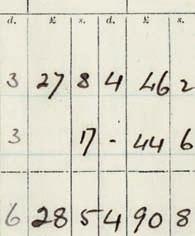 d. £ s. d. £ s.
3 27 8 4 46 2
3 17 - 44 6
6 28 5 4 90 8